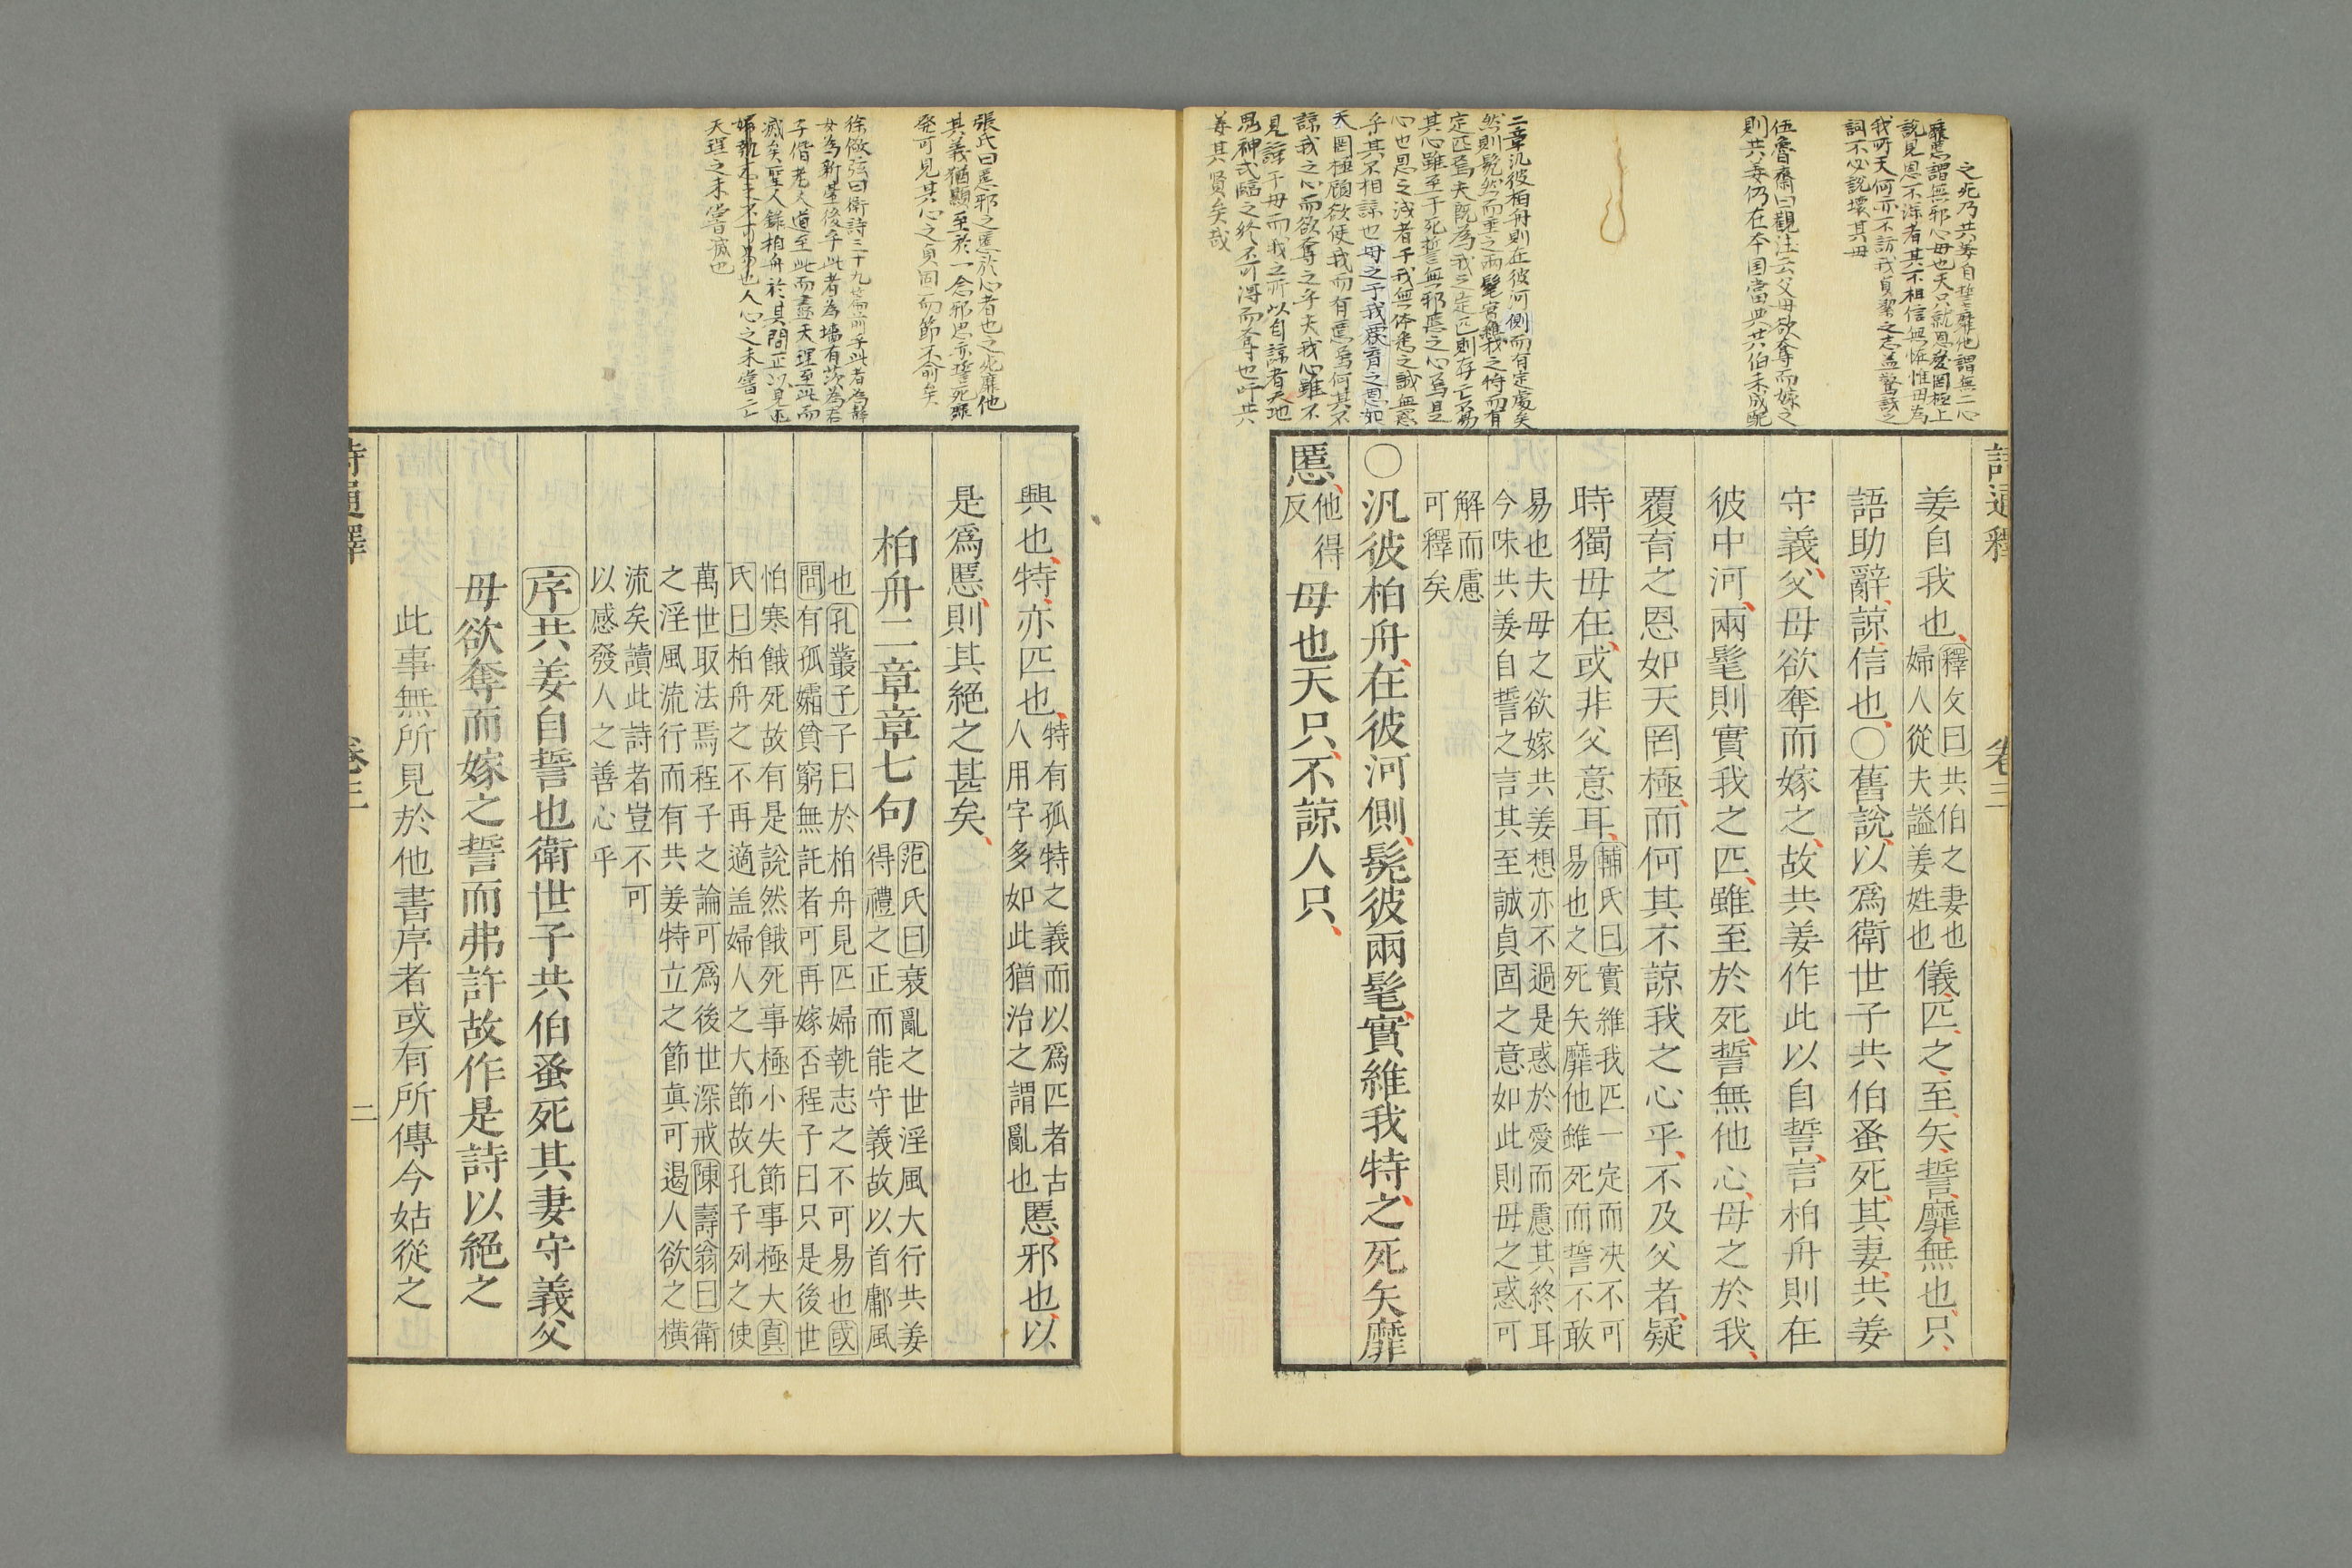 之死乃共姜自誓靡他謂無二心
靡慝謂無邪心母也天只就恩愛罔極上
說見恩不深者其不相信無怪惟母為
我所天何亦不諒我貞潔之志蓋警戒之
詞不必說壞其母
伍魯齋曰觀注云父母欲奪而嫁之
則共姜仍在本国當典共伯未成配
二章汎彼柏舟則在彼河側而有定處矣
然則髧然而垂之兩髦實維我之特而有
定匹焉夫既為我之定匹則存亡不易
其心雖至于死誓無邪慝之心焉且
心也恩之淺者于我無体悉之誠無惑
乎其不相諒也母之于我覆育之恩如
天罔極顧欲使我而有慝焉何其不
諒我之心而欲奪之乎夫我心雖不
見諒于母而我之所以自諒者天地
鬼神式臨之終不可得而奪也吁共
姜其賢矣哉
詩通釋 卷三
姜自我也釋文曰共伯之妻也婦人從夫謚姜姓也儀匹之至矢誓靡無也只
語助辭諒信也○舊說以爲衛世子共伯蚤死其妻共姜
守義父母欲奪而嫁之故共姜作此以自誓言柏舟則在
彼中河兩髦則實我之匹雖至於死誓無他心母之於我
覆育之恩如天罔極而何其不諒我之心乎不及父者疑
時獨母在或非父意耳輔氏曰實維我匹一定而決不可易也之死矢靡他雖死而誓不敢
易也夫母之欲嫁共姜想亦不過是惑於愛而慮其終耳
今味共姜自誓之言其至誠貞固之意如此則母之惑可
解而慮
可釋矣
○汎彼柏舟在彼河側髧彼兩髦實維我特之死矢靡
慝他得反母也天只不諒人只
張氏曰慝邪之匿於心者也之死靡他
其義猶顯至於一念邪思亦誓死靡
發可見其心之貞固而節不俞矣
徐儆弦曰衛詩三十九篇前乎此者為靜
女為新臺後乎此者為墻有茨為君
子偕老人道至此而盡天理至此而
滅矣聖人錄柏舟於其間正以見匹
婦執志之不可易也人心之未嘗亡
天理之未嘗滅也
興也特亦匹也特有孤特之義而以爲匹者古人用字多如此猶治之謂亂也慝邪也以
是爲慝則其絕之甚矣
柏舟二章章七句范氏曰衰亂之世淫風大行共姜得禮之正而能守義故以首鄘風
也孔叢子子曰於柏舟見匹婦執志之不可易也或
問有孤孀貧窮無託者可再嫁否程子曰只是後世
怕寒餓死故有是說然餓死事極小失節事極大真
氏曰柏舟之不再適盖婦人之大節故孔子列之使
萬世取法焉程子之論可爲後世深戒陳壽翁曰衛
之淫風流行而有共姜特立之節真可遏人欲之橫
流矣讀此詩者豈不可
以感發人之善心乎
序共姜自誓也衛世子共伯蚤死其妻守義父
母欲奪而嫁之誓而弗許故作是詩以絕之
此事無所見於他書序者或有所傳今姑從之
詩通釋 卷三 二